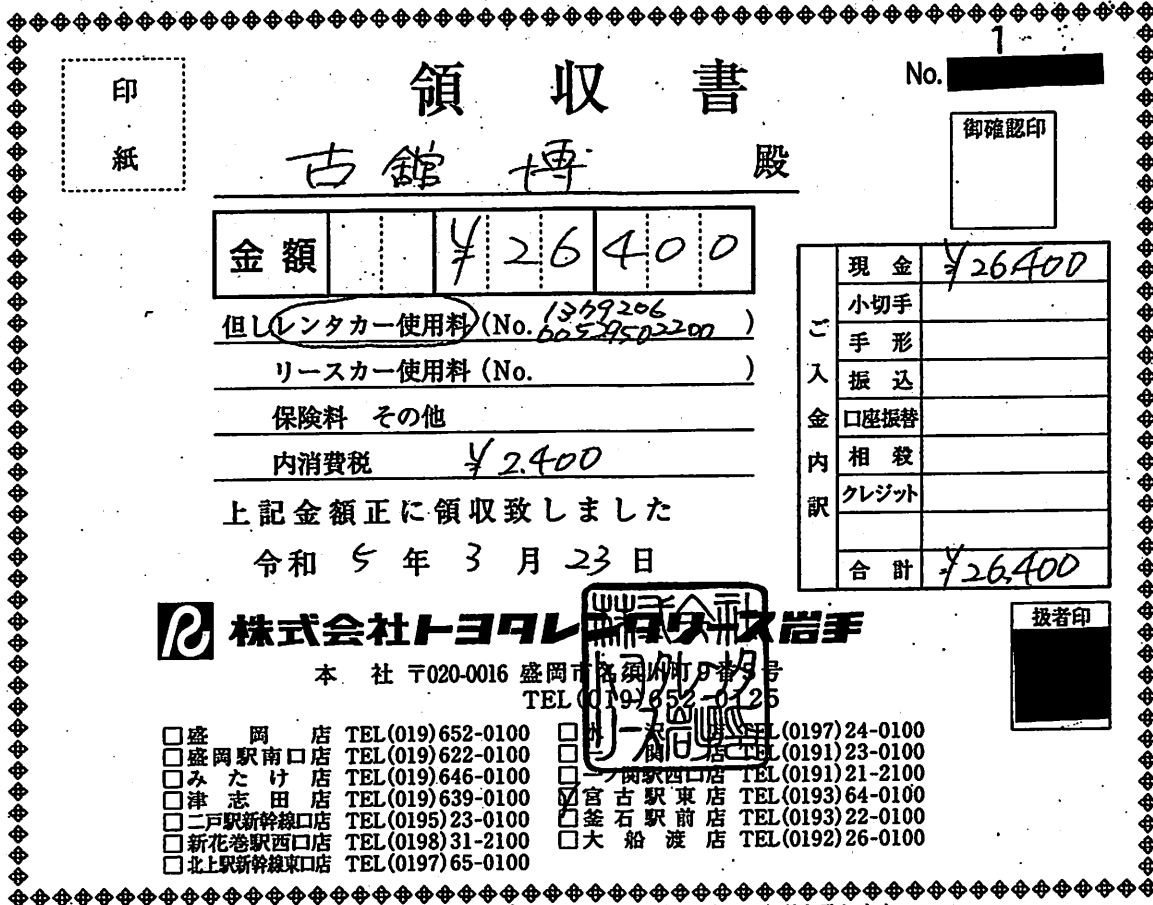 1
No.
印
紙
領収書
御確認印
古舘 博 殿
金額 ¥26400
但しレンタカー使用料(No. 1379206
00529502200 )
リースカー使用料(No. )
保険料 その他
内消費税 ¥2.400
上記金額正に領収致しました
令和 5 年 3 月 23 日
ご入金内訳
現金 ¥26.400
小切手
手形
振込
口座振替
相殺
クレジット
合計 ¥26.400
扱者印
株式会社トヨタレンタリース岩手
株式会社
トヨタレンタ
リース岩手
本社 〒020-0016 盛岡市名須川町9番5号
TEL(019)652-0125
□盛岡店 TEL(019)652-0100
□盛岡駅南口店 TEL(019)622-0100
□みたけ店 TEL(019)646-0100
□津志田店 TEL(019)639-0100
□二戸駅新幹線口店 TEL(0195)23-0100
□新花巻駅西口店 TEL(0198)31-2100
□北上駅新幹線東口店 TEL(0197)65-0100
□水沢店 TEL(0197)24-0100
□一関店 TEL(0191)23-0100
□一ノ関駅西口店 TEL(0191)21-2100
☑宮古駅東店 TEL(0193)64-0100
□釜石駅前店 TEL(0193)22-0100
□大船渡店 TEL(0192)26-0100